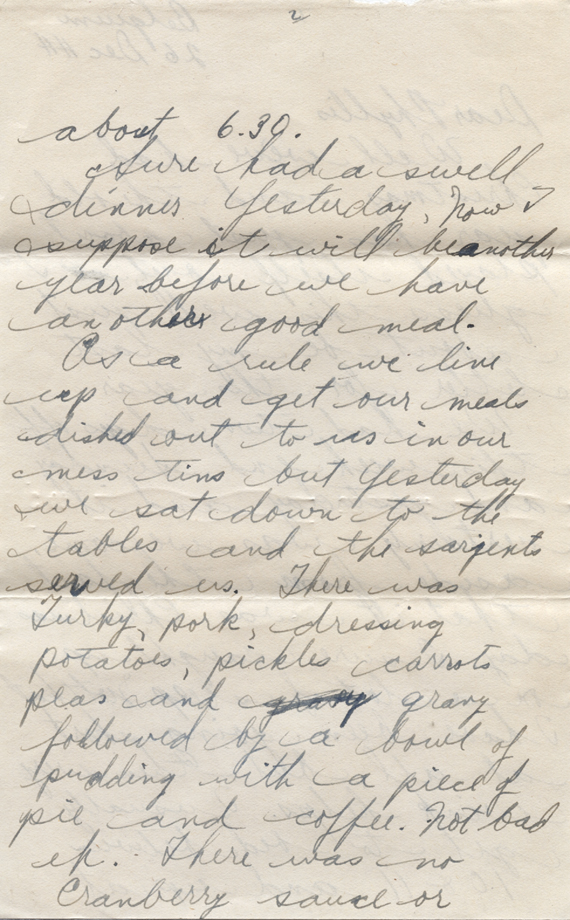 2
about 6.30.
Sure had a swell
dinner Yesterday, Now I
suppose it will be another
year before we have
another good meal.
As a rule we line
up and get our meals
dished out to us in our
mess tins but Yesterday
we sat down to the
tables and the sarjents
served us. There was
Turky, pork, dressing
potatoes, pickles carrots
peas and gravy gravy
followed by a bowl of
pudding with a piece of
pie and coffee. Not bad
eh. There was no
Cranberry sauce or
Belgium
26 Dec 44
Dear Phyllis